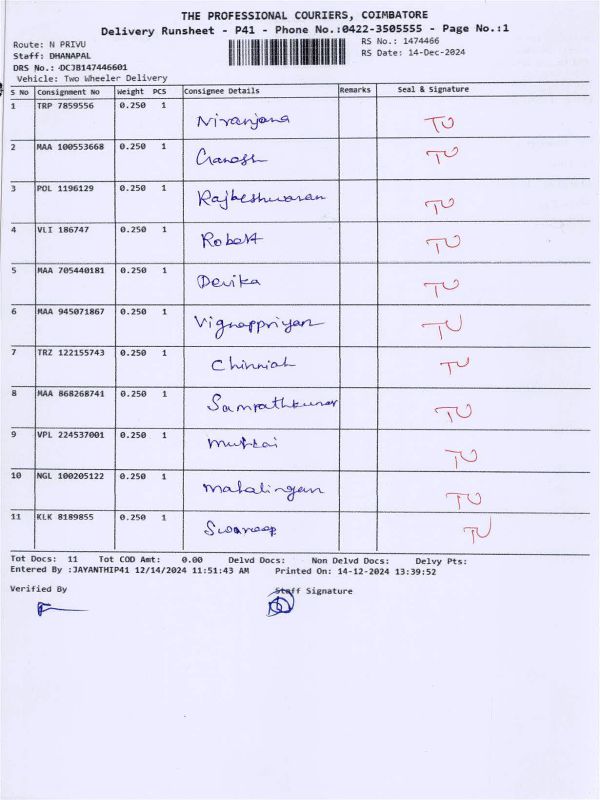 THE PROFESSIONAL COURIERS, COIMBATORE
Delivery Runsheet - P41 - Phone No.:0422-3505555 - Page No.:1
Route: N PRIVU
RS No.: 1474466
Staff: DHANAPAL
RS Date: 14-Dec-2024
DRS No.: DCJB147446601
Vehicle: Two Wheeler Delivery
S No Consignment No Weight PCS Consignee Details Remarks Seal & Signature
1 TRP 7859556 0.250 1 Niranjana TU
2 MAA 100553668 0.250 1 Ganesh TU
3 POL 1196129 0.250 1 TU
4 VLI 186747 0.250 1 Robert TU
5 MAA 705440181 0.250 1 Devika TU
6 MAA 945071867 0.250 1 TU
7 TRZ 122155743 0.250 1 Chinniah TU
8 MAA 868268741 0.250 1 Sampathkumar TU
9 VPL 224537001 0.250 1 TU
10 NGL 100205122 0.250 1 Mahalingam TU
11 KLK 8189855 0.250 1 Swaroop TU
Tot Docs: 11 Tot COD Amt: 0.00 Delvd Docs: Non Delvd Docs: Delvy Pts:
Entered By :JAYANTHIP41 12/14/2024 11:51:43 AM Printed On: 14-12-2024 13:39:52
Verified By Staff Signature